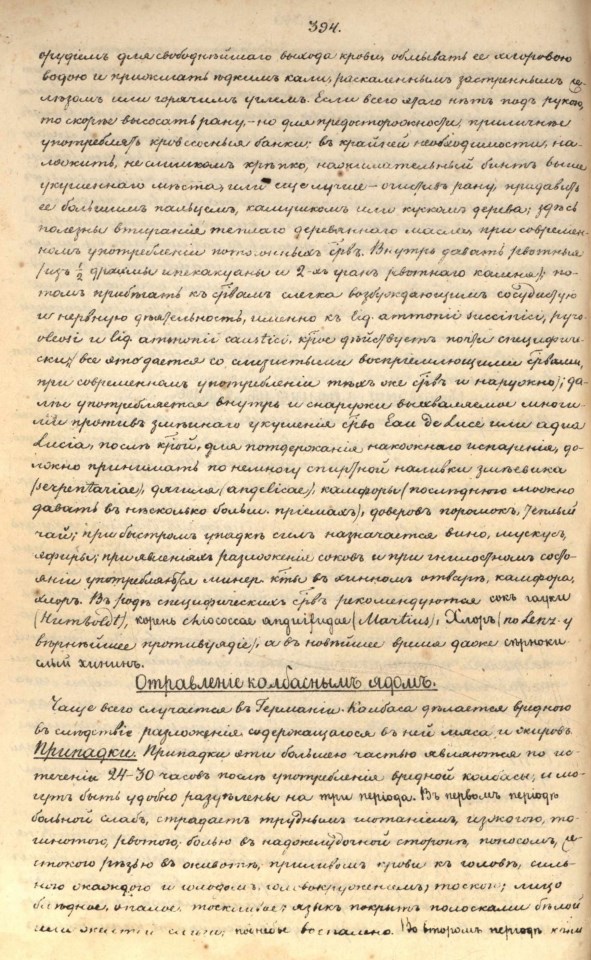 394.
орудіемъ для свободнѣйшаго выхода крови, обмывать ее хлоровою
водою и прижигать ѣдкимъ кали, раскаленнымъ застреннымъ же-
лѣзомъ или горячимъ углемъ. Если всего этаго нѣтъ подъ рукою,
то скорѣе высосать рану, – но для предосторожности, приличнѣе
употреблять кровососныя банки; въ крайней необходимости, на-
ложить, не слишкомъ крѣпко, нажимательный бинтъ выше
укушеннаго мѣста, или еще лучше – очистивъ рану, придавить
ее большимъ пальцемъ, камушкомъ или кускомъ дерева; здѣсь
полезны втиранія теплаго деревяннаго масла, при современ-
номъ употребленіи потогонныхъ ср̃въ. Внутрь давать рвотныя
(изъ ½ драхмы ипекакуаны и 2-хъ гранъ рвотнаго каменя); по-
томъ прибѣгать къ ср̃вамъ слегка возбуждающимъ сосудистую
и нервную дѣятельность, именно къ liq. ammonii succinici, pyro-
oleosi и liq. ammonii caustici, кт̃рое дѣйствуетъ почти специфиче-
ски; все это дается со слизистыми воспріемлющими ср̃вами,
при современномъ употребленіи тѣхъ же ср̃въ и наружно); да-
лѣе употребляется внутрь и снаружи выхваляемое многи-
ми противъ змѣинаго укушенія ср̃во Eau de Luce или aqua
Lucia, послѣ кт̃рой, для потдержанія накожнаго испаренія, до-
лжно принимать по немногу спиртной наливки змѣевика
(serpentariae), дягиля (angelicae), камфоры (послѣднюю можно
давать въ нѣсколько больш. пріемахъ), доверовъ порошокъ, теплый
чай; при быстромъ упадкѣ силъ назначается вино, мускусъ,
эфиры; при явленіяхъ разложенія соковъ и при гнилостномъ состо-
яніи употребляются минер. к̃ты въ хинномъ отварѣ, камфора,
хлоръ. Въ родѣ специфическихъ ср̃въ рекомендуются сокъ гауки
(Humboldt), корень chiococcae anguifugae (Martius), Хлоръ (по Lenz-у
вѣрнѣйшее противуядіе), а въ новѣйшее время даже сѣрноки-
слый хининъ.
Отравленіе колбаснымъ ядомъ.
Чаще всего случается въ Германіи. Колбаса дѣлается вредною
въ слѣдствіе разложенія содержащагося въ ней мяса и жировъ.
Припадки. Припадки эти большею частью являются по ис-
теченіи 24-30 часовъ послѣ употребленія вредной колбасы, и мо-
гутъ быть удобно раздѣлены на три періода. Въ первомъ періодѣ
больной слабъ, страдаетъ труднымъ глотаніемъ, изжогою, то-
шнотою, рвотою, болью въ надожелудочной сторонѣ, поносомъ, же-
стокою рѣзью въ животѣ, приливомъ крови къ головѣ, силь-
ною жаждою и голодомъ, головокруженіемъ, тоскою; лицо
блѣдное, опалое, тоскливое; языкъ покрытъ полосками бѣлой
или желтой слизи; по небѣ воспалено. Во второмъ періодѣ